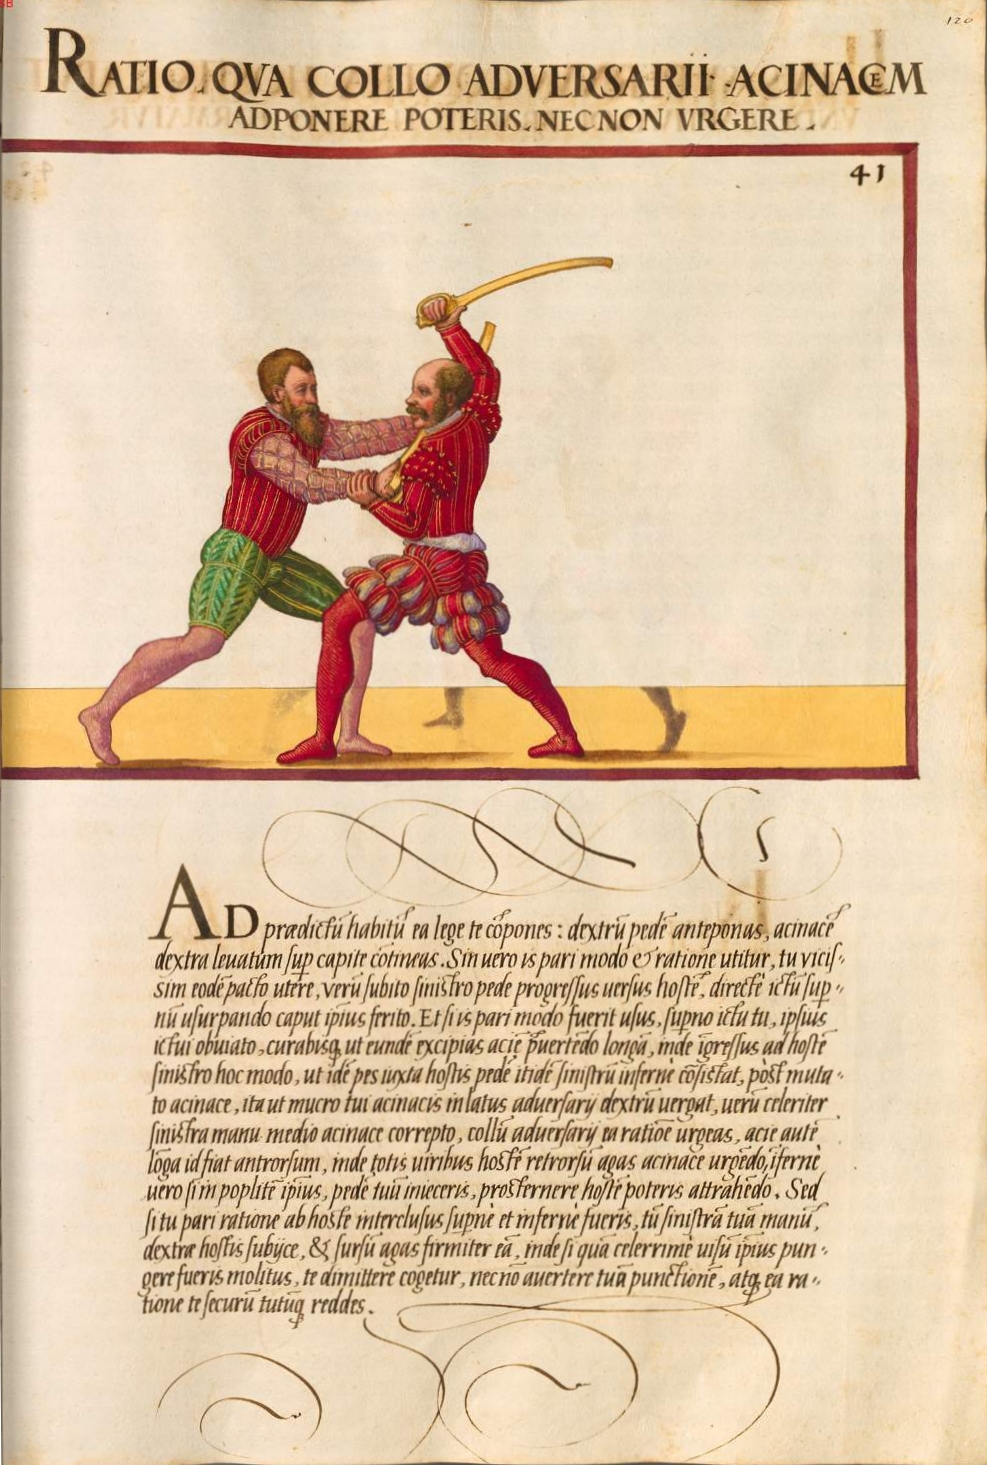 120
RATIO, QVA COLLO ADVERSARII ACINACEM
ADPONERE POTERIS, NEC NON VRGERE.
41
AD prædictũ habitũ ea lege te cõpones: dextrũ pedẽ anteponas, acinacẽ
dextra leuatum sup capite cõtineas. Sin uero is pari modo & ratione utitur, tu vicis-
sim eodẽ pacto utere, verũ subito sinistro pede progressus uersus hostẽ, directè ictũ sup-
nũ usurpando caput ipsius ferito. Et si is pari modo fuerit usus, supno ictu tu, ipsius
ictui obuiato, curabisq, ut eundẽ excipias aciẽ puertẽdo longã, inde igressus ad hostẽ
sinistro hoc modo, ut idẽ pes iuxta hostis pedẽ itidẽ sinistrũ infernè cõsistat, pòst muta-
to acinace, ita ut mucro tui acinacis in latus aduersarij dextrũ uergat, uerũ celeriter
sinistra manu medio acinace correpto, collũ aduersarij ea ratiõe urgeas, acie autẽ
lõga id fiat antrorsum, inde totis uiribus hostẽ retrorsũ agas acinace urgẽdo, ifernè
uero si in poplitẽ ipsius, pedẽ tuũ inieceris, prosternere hostẽ poteris attrahẽdo. Sed
si tu pari ratione ab hoste interclusus supnè et infernè fueris, tũ sinistrã tuã manũ,
dextræ hostis subijce, & sursũ agas firmiter eã, inde si quà celerrimè uisũ ipsius pun-
gere fueris molitus, te dimittere cogetur, nec nõ auertere tuã punctionẽ, atq ea ra-
tione te securũ tutũq reddes.